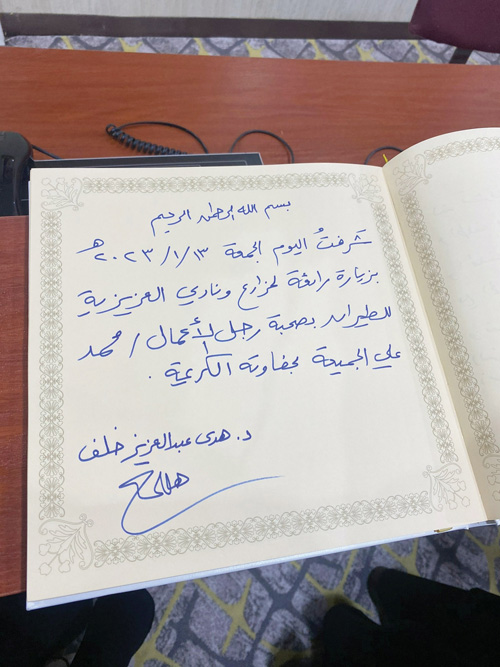 بسم الله الرحمن الرحيم
تشرفتُ اليوم الجمعة ٢٠٢٣/١/١٣ هـ
بزيارة رائقة لمزارع ونادي العزيزية
للطيران بصحبة رجل الأعمال / محمد
علي الجميعة بحفاوته الكريمة .
د. هدى عبدالعزيز خلف